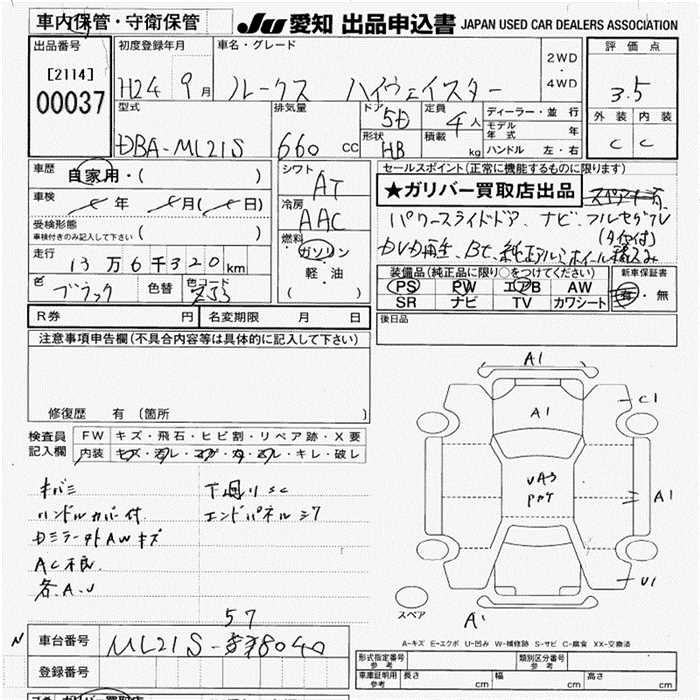 車内保管・守衛保管
JU 愛知 出品申込書 JAPAN USED CAR DEALERS ASSOCIATION
出品番号 初度登録年月 車名・グレード 2WD・4WD 評価点
[2114] 00037 H24年9月 ルークス ハイウェイスター 3.5
型式 排気量 ドア 5D 定員 4人 ディーラー・並行 外装 内装
モデル年式 年
DBA-ML21S 660cc 形状 HB 積載 kg ハンドル 左・右 C C
車歴 自家用・( )
シフト AT
セールスポイント(正常に機能するものに限ります)
★ガリバー買取店出品
車検 年 月( 日)
冷房 AAC
パワースライドドア、ナビ、フルセグTV
受検形態 ( )
車検付きのみ記入して下さい
燃料 ガソリン
軽・油
( )
走行 13万6千320km
装備品(純正品に限り○をつけてください) 新車保証書
色 ブラック 色替 色コード ZJ3
PS PW エアB AW 有・無
SR ナビ TV カワシート
R券 円 名変期限 月 日
後日品
注意事項申告欄(不具合内容等は具体的に記入して下さい)
修復歴 有(箇所 )
A1
検査員記入欄 FW キズ・飛石・ヒビ割・リペア跡・X要
内装 キズ・汚レ・コゲ・カ・ヌレ・キレ・破レ
C1
A1
キバミ 下廻りSC
ハンドルカバー付 エンドパネルヨ7
UA3
PHT
A1
DミラーキズAWキズ
AC不良
各A.U
U1
スペア
A1
A-キズ E-エクボ U-凹み W-補修跡 S-サビ C-腐食 XX-交換済
57
N 車台番号 ML21S-578040
登録番号
形式指定番号 参考 類別区分番号 参考
車庫証明用 参考 長さ cm 幅 cm 高さ cm
ガリバー買取店